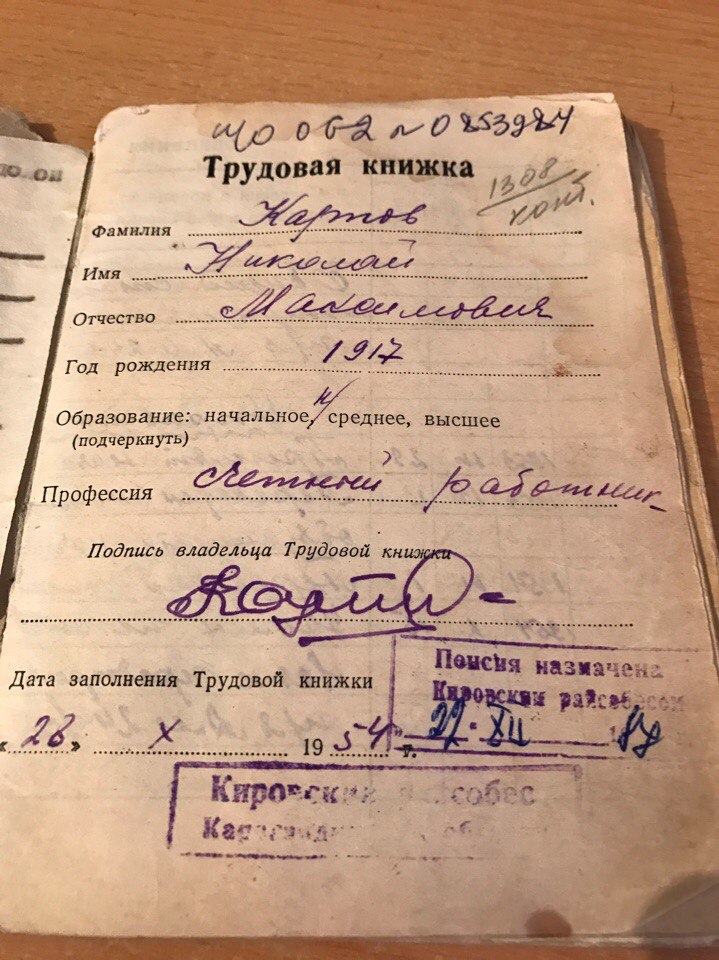 №0853984
Трудовая книжка
1308
Фамилия Карпов
Имя Николай
Отчество Максимович
Год рождения 1917
Образование: начальное, н/ среднее, высшее
(подчеркнуть)
Профессия счетный работник
Подпись владельца Трудовой книжки
Дата заполнения Трудовой книжки
«26» X 1954 г.
Пенсия назначена
Кировским райсобесом
22 XII
Кировский райсобес